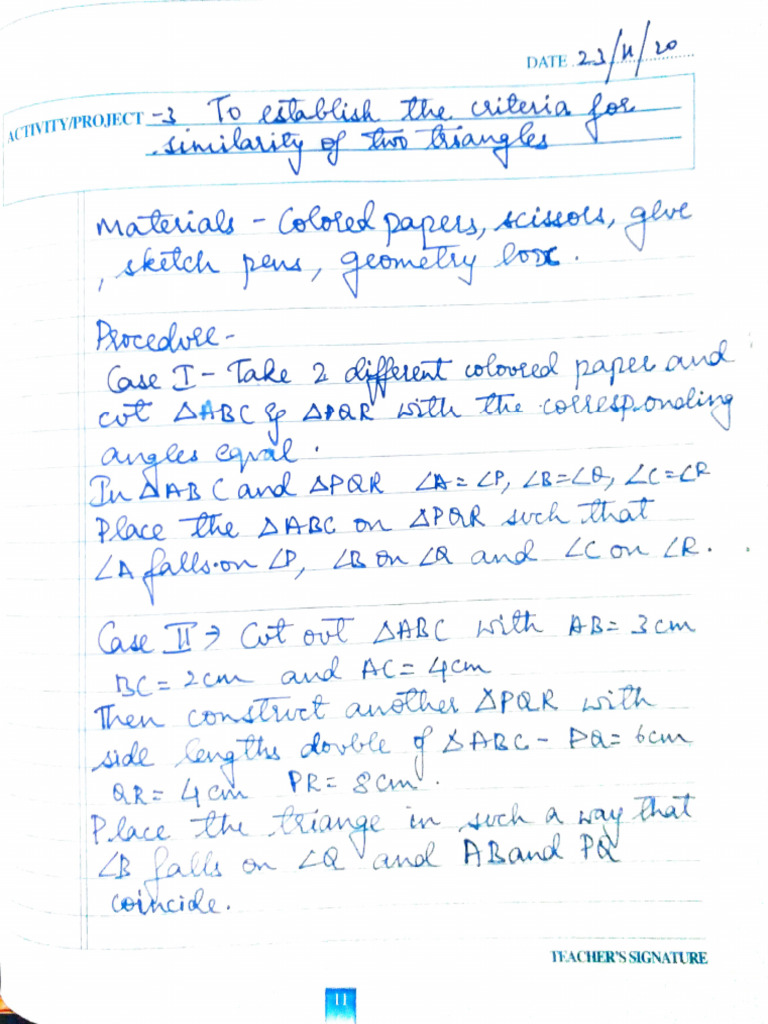 DATE 23/11/20
ACTIVITY/PROJECT -3 To establish the criteria for
similarity of two triangles
Materials - Colored papers, scissors, glue
, sketch pens, geometry box.
Procedure-
Case I - Take 2 different coloured paper and
cut △ABC & △PQR with the corresponding
angles equal.
In △ABC and △PQR ∠A = ∠P, ∠B=∠Q, ∠C=∠R
Place the △ABC on △PQR such that
∠A falls on ∠P, ∠B on ∠Q and ∠C on ∠R.
Case II → Cut out △ABC with AB= 3cm
BC = 2cm and AC= 4cm
Then construct another △PQR with
side lengths double of △ABC - PQ= 6cm
QR= 4cm PR= 8cm.
Place the triange in such a way that
∠B falls on ∠Q and AB and PQ
coincide.
TEACHER'S SIGNATURE
11